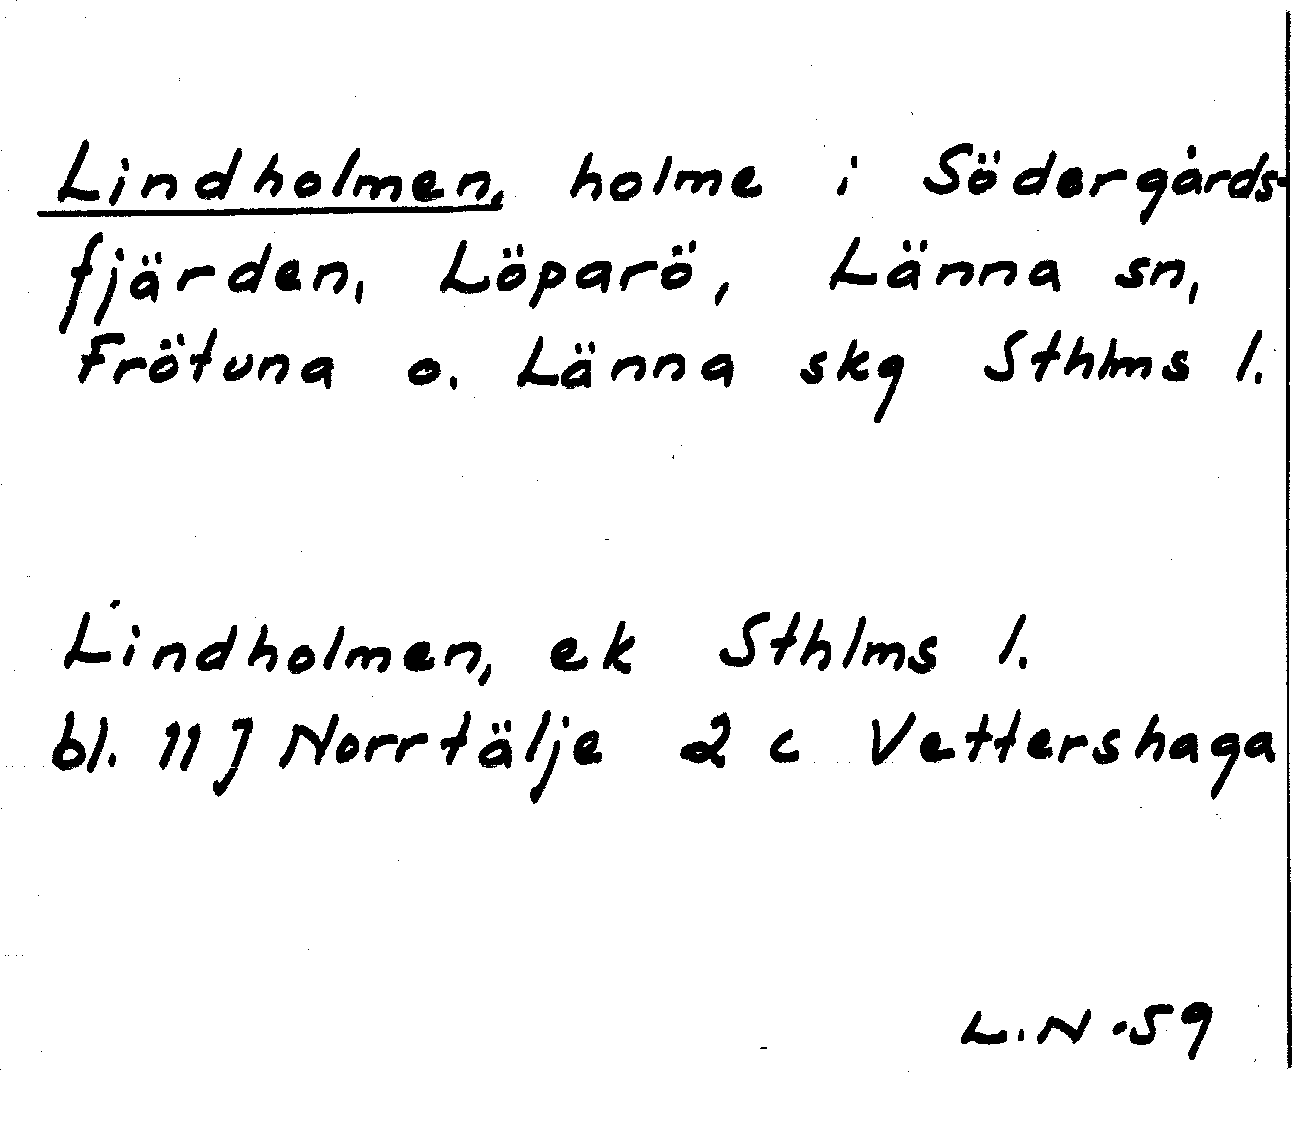 Lindholmen, holme i Södergårds-
fjärden, Löparö, Länna sn,
Frötuna o. Länna skg Sthlms l.
Lindholmen, ek Sthlms l.
bl. 11 J Norrtälje 2 c Vettershaga
L.N -59